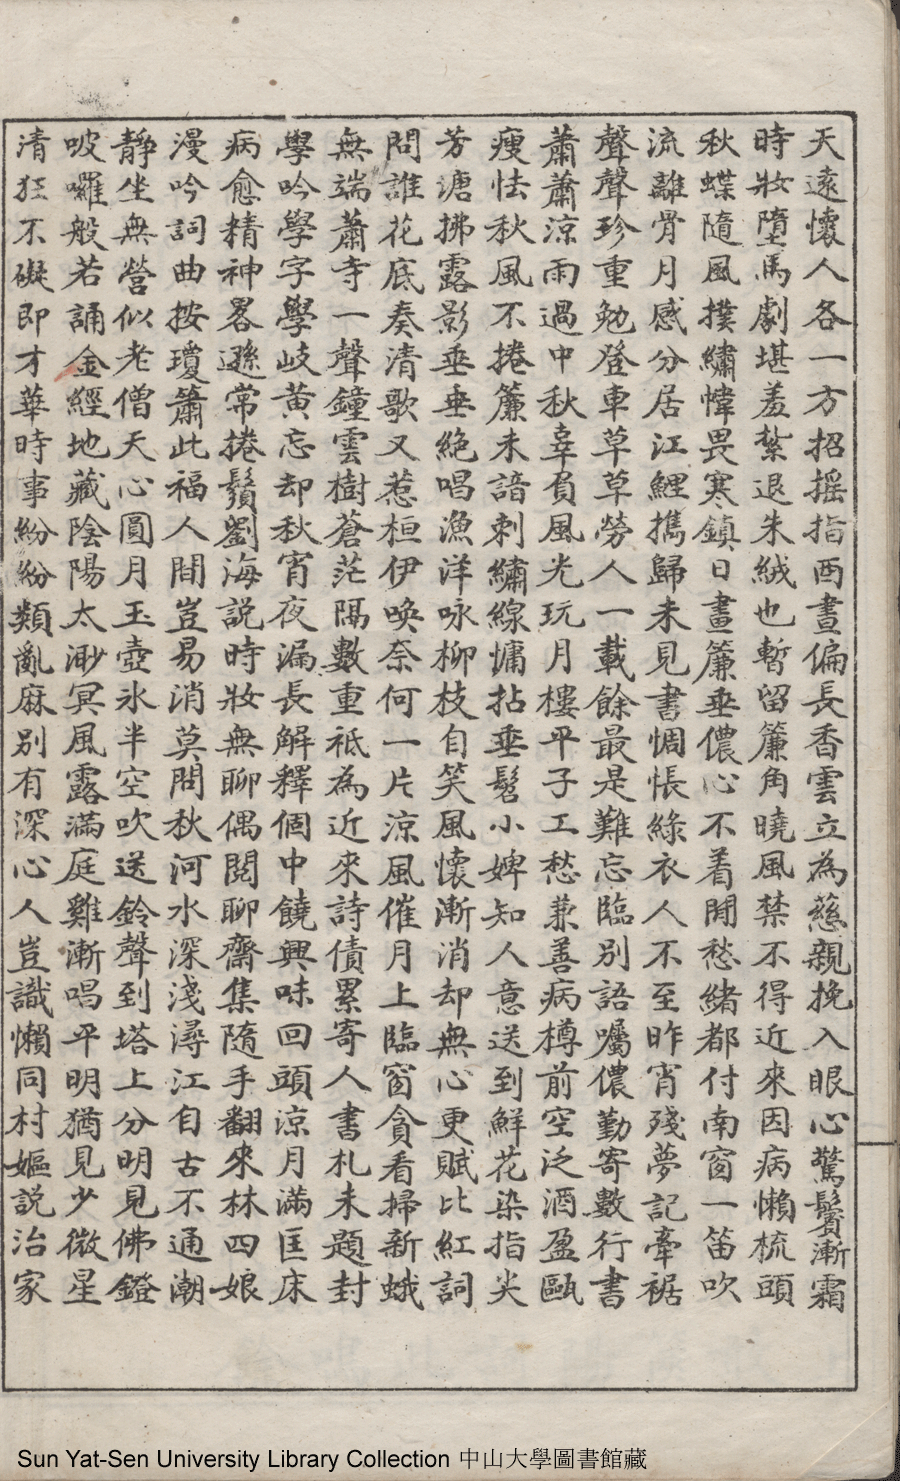 天遠懷人各一方招搖指酉晝偏長香雲立為慈親挽入眼心驚鬢漸霜
時妝墮馬劇堪羞紮退朱絨也暫留簾角曉風禁不得近來因病懶梳頭
秋蝶隨風撲繡幃畏寒鎮日畫簾垂儂心不着閒愁緒都付南窗一笛吹
流離骨月感分居江鯉擕歸未見書惆悵綠衣人不至昨宵殘夢記牽裾
聲聲珍重勉登車草草勞人一載餘最是難忘臨別語囑儂勤寄數行書
蕭蕭涼雨過中秋辜負風光玩月樓平子工愁兼善病樽前空泛酒盈甌
瘦怯秋風不捲簾未諳刺繡線慵拈垂髫小婢知人意送到鮮花染指尖
芳塘拂露影垂垂絶唱漁洋咏柳枝自笑風懷漸消却無心更賦比紅詞
問誰花底奏清歌又惹桓伊喚奈何一片涼風催月上臨窗貪看掃新蛾
無端蕭寺一聲鐘雲樹蒼茫隔數重祗為近來詩債累寄人書札未題封
學吟學字學岐黃忘却秋宵夜漏長解釋個中饒興味回頭涼月滿匡床
病愈精神畧遜常捲鬚劉海説時妝無聊偶閱聊齋集隨手翻來林四娘
漫吟詞曲按瓊簫此福人間豈易消莫問秋河水深淺潯江自古不通潮
靜坐無營似老僧天心圓月玉壺氷半空吹送鈴聲到塔上分明見佛鐙
唆囉般若誦金經地藏陰陽太渺冥風露滿庭雞漸唱平明猶見少微星
清狂不礙即才華時事紛紛類亂麻別有深心人豈識懶同村嫗説治家
Sun Yat-Sen University Library Collection 中山大學圖書館藏